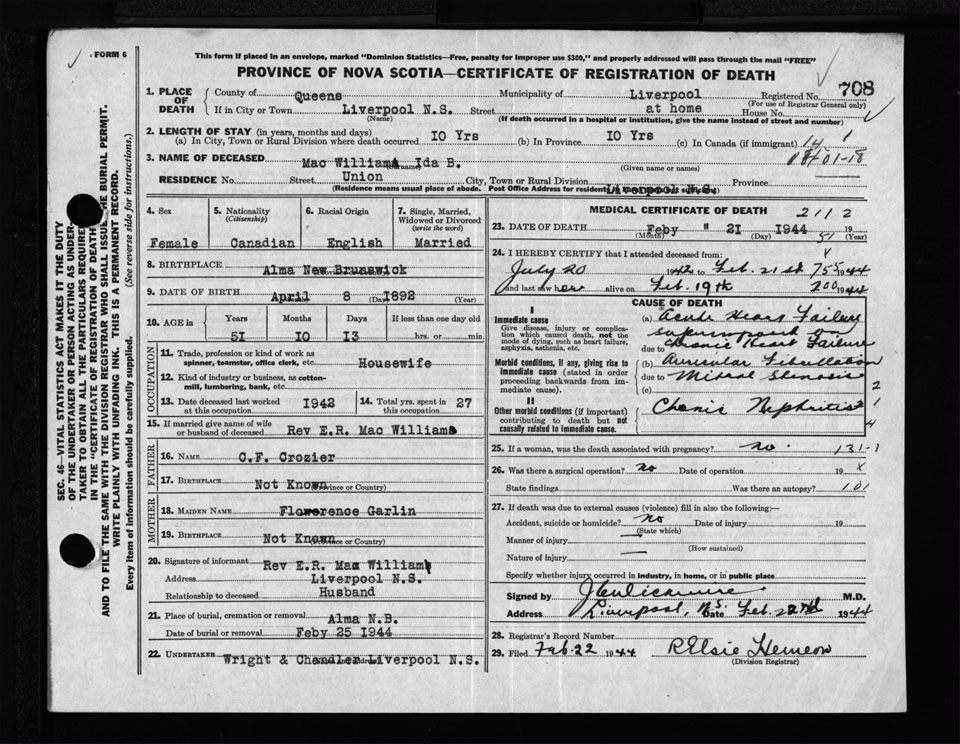 FORM 6
This form if placed in an envelope, marked "Dominion Statistics—Free, penalty for improper use $300," and properly addressed will pass through the mail "FREE"
PROVINCE OF NOVA SCOTIA—CERTIFICATE OF REGISTRATION OF DEATH
708
1. PLACE OF DEATH
County of Queens Municipality of Liverpool Registered No.
(For use of Registrar General only)
If in City or Town Liverpool N.S. Street at home House No.
(Name) (If death occurred in a hospital or institution, give the name instead of street and number)
2. LENGTH OF STAY (in years, months and days)
(a) In City, Town or Rural Division where death occurred 10 Yrs (b) In Province 10 Yrs (c) In Canada (if immigrant)
3. NAME OF DECEASED Mac Williams Ida B.
(Given name or names)
RESIDENCE No. Street Union City, Town or Rural Division Liverpool N.S. Province
(Residence means usual place of abode. Post Office Address for residents
4. Sex
Female
5. Nationality (Citizenship)
Canadian
6. Racial Origin
English
7. Single, Married, Widowed or Divorced (write the word)
Married
8. BIRTHPLACE Alma New Brunswick
9. DATE OF BIRTH April 8 (Day) 1892 (Year)
10. AGE in Years Months Days If less than one day old
51 10 13 hrs. or min.
OCCUPATION
11. Trade, profession or kind of work as spinner, teamster, office clerk, etc. Housewife
12. Kind of industry or business, as cotton-mill, lumbering, bank, etc.
13. Date deceased last worked at this occupation 1942
14. Total yrs. spent in this occupation 27
15. If married give name of wife or husband of deceased Rev E.R. Mac Williams
FATHER
16. NAME C.F. Crozier
17. BIRTHPLACE Not Known (Province or Country)
MOTHER
18. MAIDEN NAME Flowerence Garlin
19. BIRTHPLACE Not Known (Province or Country)
20. Signature of informant Rev E.R. Mac Williams
Address Liverpool N.S.
Relationship to deceased Husband
21. Place of burial, cremation or removal Alma N.B.
Date of burial or removal Feby 25 1944
22. UNDERTAKER Wright & Chandler Liverpool N.S.
MEDICAL CERTIFICATE OF DEATH 2112
23. DATE OF DEATH Feby " 21 1944 19
(Month) (Day) 51 (Year)
24. I HEREBY CERTIFY that I attended deceased from:
July 20 1942 to Feb. 21st 1944
and last saw her alive on Feb. 19th 1944
CAUSE OF DEATH
I
Immediate cause
Give disease, injury or complication which caused death, not the mode of dying, such as heart failure, asphyxia, asthenia, etc.
(a) Acute Heart Failure
due to Chronic Heart Failure
Morbid conditions, if any, giving rise to immediate cause (stated in order proceeding backwards from immediate cause).
(b) Auricular Fibrillation
due to Mitral Stenosis
(c)
II
Other morbid conditions (if important) contributing to death but not causally related to immediate cause.
Chonic Nephritis
25. If a woman, was the death associated with pregnancy? no. 131-1
26. Was there a surgical operation? no Date of operation 19
State findings Was there an autopsy? 101
27. If death was due to external causes (violence) fill in also the following:—
Accident, suicide or homicide? no Date of injury 19
(State which)
Manner of injury
(How sustained)
Nature of injury
Specify whether injury occurred in industry, in home, or in public place
Signed by M.D.
Address Liverpool, N.S. Date Feb. 22nd 1944
28. Registrar's Record Number
29. Filed Feb. 22 1944 R Elsie Hemeon
(Division Registrar)
SEC. 46—VITAL STATISTICS ACT MAKES IT THE DUTY
OF THE UNDERTAKER OR PERSON ACTING AS UNDER-
TAKER TO OBTAIN ALL THE PARTICULARS REQUIRED
IN THE "CERTIFICATE OF REGISTRATION OF DEATH
AND TO FILE THE SAME WITH THE DIVISION REGISTRAR WHO SHALL ISSUE THE BURIAL PERMIT.
WRITE PLAINLY WITH UNFADING INK. THIS IS A PERMANENT RECORD.
Every item of information should be carefully supplied. (See reverse side for instructions.)